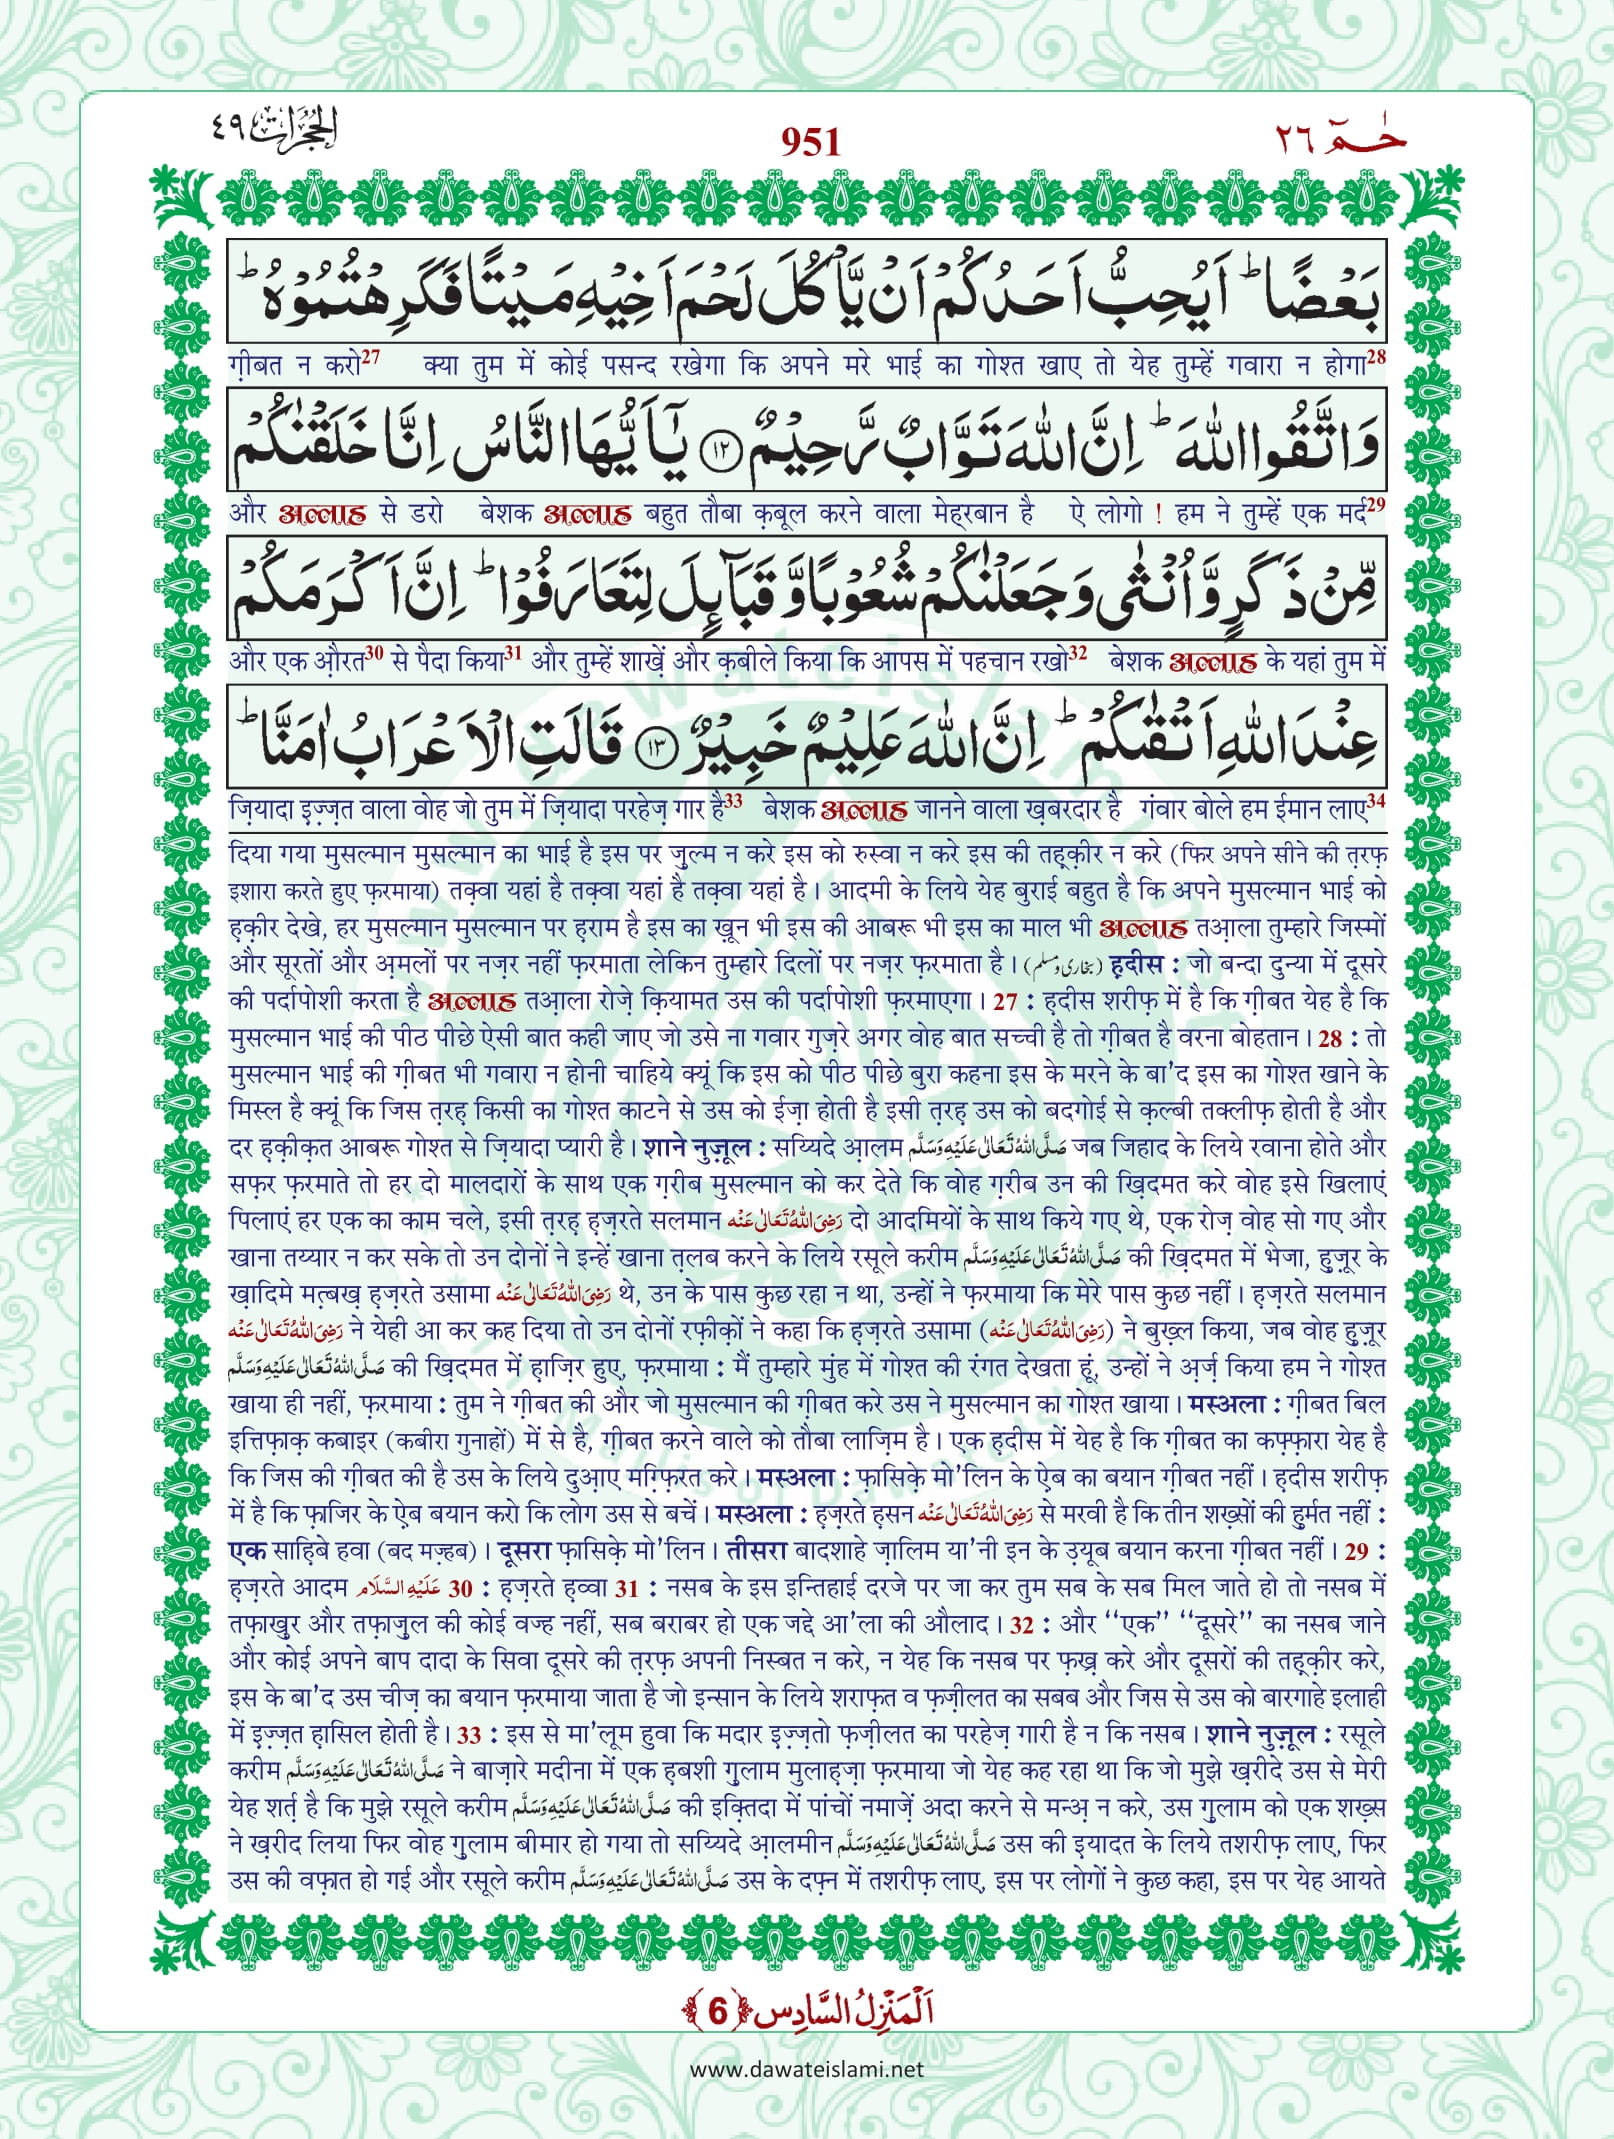 الحجرات ٤٩
951
حٰمٓ ٢٦
بَعْضًا ؕ اَیُحِبُّ اَحَدُكُمْ اَنْ یَّاْكُلَ لَحْمَ اَخِیْهِ مَیْتًا فَكَرِهْتُمُوْهُ ؕ
ग़ीबत न करो27 क्या तुम में कोई पसन्द रखेगा कि अपने मरे भाई का गोश्त खाए तो येह तुम्हें गवारा न होगा28
وَ اتَّقُوا اللّٰهَ ؕ اِنَّ اللّٰهَ تَوَّابٌ رَّحِیْمٌ ﴿۱۲﴾ یٰۤاَیُّهَا النَّاسُ اِنَّا خَلَقْنٰكُمْ
और अल्लाह से डरो बेशक अल्लाह बहुत तौबा क़बूल करने वाला मेह्रबान है ऐ लोगो ! हम ने तुम्हें एक मर्द29
مِّنْ ذَكَرٍ وَّ اُنْثٰى وَ جَعَلْنٰكُمْ شُعُوْبًا وَّ قَبَآىٕلَ لِتَعَارَفُوْا ؕ اِنَّ اَكْرَمَكُمْ
और एक औ़रत30 से पैदा किया31 और तुम्हें शाख़ें और क़बीले किया कि आपस में पहचान रखो32 बेशक अल्लाह के यहां तुम में
عِنْدَ اللّٰهِ اَتْقٰىكُمْ ؕ اِنَّ اللّٰهَ عَلِیْمٌ خَبِیْرٌ ﴿۱۳﴾ قَالَتِ الْاَعْرَابُ اٰمَنَّا ؕ
ज़ियादा इ़ज़्ज़त वाला वोह जो तुम में ज़ियादा परहेज़ गार है33 बेशक अल्लाह जानने वाला ख़बरदार है गंवार बोले हम ईमान लाए34
दिया गया मुसल्मान मुसल्मान का भाई है इस पर ज़ुल्म न करे इस को रुस्वा न करे इस की तह़क़ीर न करे (फिर अपने सीने की त़रफ़
इशारा करते हुए फ़रमाया) तक़्वा यहां है तक़्वा यहां है तक़्वा यहां है। आदमी के लिये येह बुराई बहुत है कि अपने मुसल्मान भाई को
ह़क़ीर देखे, हर मुसल्मान मुसल्मान पर ह़राम है इस का ख़ून भी इस की आबरू भी इस का माल भी अल्लाह तआ़ला तुम्हारे जिस्मों
और सूरतों और अ़मलों पर नज़र नहीं फ़रमाता लेकिन तुम्हारे दिलों पर नज़र फ़रमाता है। (بخاری ومسلم) ह़दीस : जो बन्दा दुन्या में दूसरे
की पर्दापोशी करता है अल्लाह तआ़ला रोज़े क़ियामत उस की पर्दापोशी फ़रमाएगा। 27 : ह़दीस शरीफ़ में है कि ग़ीबत येह है कि
मुसल्मान भाई की पीठ पीछे ऐसी बात कही जाए जो उसे ना गवार गुज़रे अगर वोह बात सच्ची है तो ग़ीबत है वरना बोहतान। 28 : तो
मुसल्मान भाई की ग़ीबत भी गवारा न होनी चाहिये क्यूं कि इस को पीठ पीछे बुरा कहना इस के मरने के बा'द इस का गोश्त खाने के
मिस्ल है क्यूं कि जिस त़रह़ किसी का गोश्त काटने से उस को ईज़ा होती है इसी त़रह़ उस को बदगोई से क़ल्बी तक्लीफ़ होती है और
दर ह़क़ीक़त आबरू गोश्त से ज़ियादा प्यारी है। शाने नुज़ूल : सय्यिदे आ़लम صَلَّى اللّٰهُ تَعَالٰى عَلَيْهِ وَسَلَّم जब जिहाद के लिये रवाना होते और
सफ़र फ़रमाते तो हर दो मालदारों के साथ एक ग़रीब मुसल्मान को कर देते कि वोह ग़रीब उन की ख़िदमत करे वोह इसे खिलाएं
पिलाएं हर एक का काम चले, इसी त़रह़ ह़ज़रते सलमान رَضِىَ اللّٰهُ تَعَالٰى عَنْه दो आदमियों के साथ किये गए थे, एक रोज़ वोह सो गए और
खाना तय्यार न कर सके तो उन दोनों ने इन्हें खाना त़लब करने के लिये रसूले करीम صَلَّى اللّٰهُ تَعَالٰى عَلَيْهِ وَسَلَّم की ख़िदमत में भेजा, हुज़ूर के
ख़ादिमे मत़्बख़ ह़ज़रते उसामा رَضِىَ اللّٰهُ تَعَالٰى عَنْه थे, उन के पास कुछ रहा न था, उन्हों ने फ़रमाया कि मेरे पास कुछ नहीं। ह़ज़रते सलमान
رَضِىَ اللّٰهُ تَعَالٰى عَنْه ने येही आ कर कह दिया तो उन दोनों रफ़ीक़ों ने कहा कि ह़ज़रते उसामा (رَضِىَ اللّٰهُ تَعَالٰى عَنْه) ने बुख़्ल किया, जब वोह हुज़ूर
صَلَّى اللّٰهُ تَعَالٰى عَلَيْهِ وَسَلَّم की ख़िदमत में ह़ाज़िर हुए, फ़रमाया : मैं तुम्हारे मुंह में गोश्त की रंगत देखता हूं, उन्हों ने अ़र्ज़ किया हम ने गोश्त
खाया ही नहीं, फ़रमाया : तुम ने ग़ीबत की और जो मुसल्मान की ग़ीबत करे उस ने मुसल्मान का गोश्त खाया। मस्अला : ग़ीबत बिल
इत्तिफ़ाक़ कबाइर (कबीरा गुनाहों) में से है, ग़ीबत करने वाले को तौबा लाज़िम है। एक ह़दीस में येह है कि ग़ीबत का कफ़्फ़ारा येह है
कि जिस की ग़ीबत की है उस के लिये दुआ़ए मग़्फ़िरत करे। मस्अला : फ़ासिक़े मो'लिन के ऐ़ब का बयान ग़ीबत नहीं। ह़दीस शरीफ़
में है कि फ़ाजिर के ऐ़ब बयान करो कि लोग उस से बचें। मस्अला : ह़ज़रते ह़सन رَضِىَ اللّٰهُ تَعَالٰى عَنْه से मरवी है कि तीन शख़्सों की हुर्मत नहीं :
एक साह़िबे हवा (बद मज़्हब)। दूसरा फ़ासिक़े मो'लिन। तीसरा बादशाहे ज़ालिम या'नी इन के उ़यूब बयान करना ग़ीबत नहीं। 29 :
ह़ज़रते आदम عَلَيْهِ السَّلَام 30 : ह़ज़रते ह़व्वा 31 : नसब के इस इन्तिहाई दरजे पर जा कर तुम सब के सब मिल जाते हो तो नसब में
तफ़ाख़ुर और तफ़ाज़ुल की कोई वज्ह नहीं, सब बराबर हो एक जद्दे आ'ला की औलाद। 32 : और ‘‘एक’’ ‘‘दूसरे’’ का नसब जाने
और कोई अपने बाप दादा के सिवा दूसरे की त़रफ़ अपनी निस्बत न करे, न येह कि नसब पर फ़ख़्र करे और दूसरों की तह़क़ीर करे,
इस के बा'द उस चीज़ का बयान फ़रमाया जाता है जो इन्सान के लिये शराफ़त व फ़ज़ीलत का सबब और जिस से उस को बारगाहे इलाही
में इ़ज़्ज़त ह़ासिल होती है। 33 : इस से मा'लूम हुवा कि मदार इ़ज़्ज़तो फ़ज़ीलत का परहेज़ गारी है न कि नसब। शाने नुज़ूल : रसूले
करीम صَلَّى اللّٰهُ تَعَالٰى عَلَيْهِ وَسَلَّم ने बाज़ारे मदीना में एक ह़बशी ग़ुलाम मुलाह़ज़ा फ़रमाया जो येह कह रहा था कि जो मुझे ख़रीदे उस से मेरी
येह शर्त़ है कि मुझे रसूले करीम صَلَّى اللّٰهُ تَعَالٰى عَلَيْهِ وَسَلَّم की इक़्तिदा में पांचों नमाज़ें अदा करने से मन्अ़ न करे, उस ग़ुलाम को एक शख़्स
ने ख़रीद लिया फिर वोह ग़ुलाम बीमार हो गया तो सय्यिदे आ़लमीन صَلَّى اللّٰهُ تَعَالٰى عَلَيْهِ وَسَلَّم उस की इ़यादत के लिये तशरीफ़ लाए, फिर
उस की वफ़ात हो गई और रसूले करीम صَلَّى اللّٰهُ تَعَالٰى عَلَيْهِ وَسَلَّم उस के दफ़्न में तशरीफ़ लाए, इस पर लोगों ने कुछ कहा, इस पर येह आयते
اَلْمَنْزِلُ السَّادِس ﴿6﴾
www.dawateislami.net